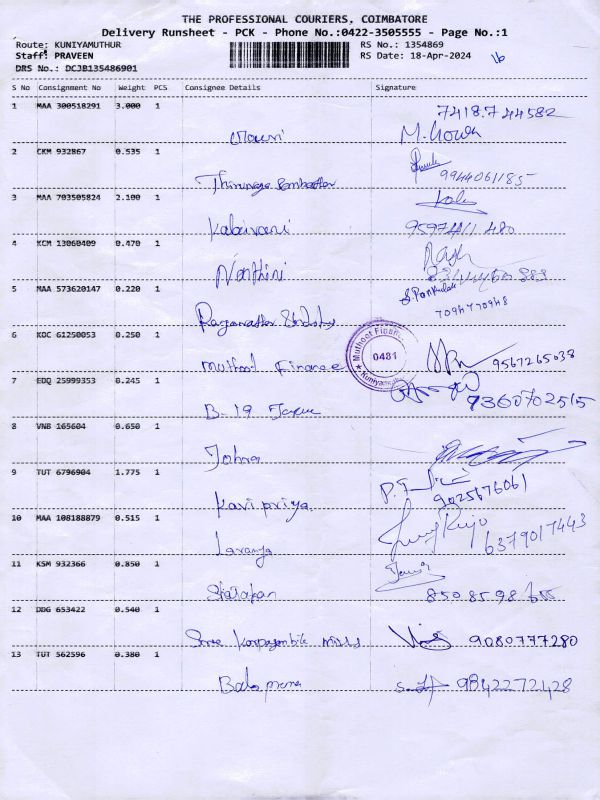 THE PROFESSIONAL COURIERS, COIMBATORE
Delivery Runsheet - PCK - Phone No.:0422-3505555 - Page No.:1
Route: KUNIYAMUTHUR RS No.: 1354869
Staff: PRAVEEN RS Date: 18-Apr-2024
DRS No.: DCJB135486901
S No Consignment No Weight PCS Consignee Details Signature
1 MAA 300518291 3.000 1
7418744582
M. Gowri
2 CKM 932867 0.535 1
9944061185
3 MAA 703505824 2.100 1
Kalaivani
4 KCM 13060409 0.470 1
Nanthini
5 MAA 573620147 0.220 1
7094770948
6 KOC 61250053 0.250 1
Muthoot Finance
Muthoot Finance 0481 Kuniyamuthur
9567265038
7 EDQ 25999353 0.245 1
B-19
9360702515
8 VNB 165604 0.650 1
9 TUT 6796904 1.775 1
Kavi priya
9025676061
10 MAA 108188879 0.515 1
Lavanya 6379017443
11 KSM 932366 0.850 1
12 DDG 653422 0.540 1
Sree Karpagambika mills 9080777280
13 TUT 562596 0.380 1
9842272428